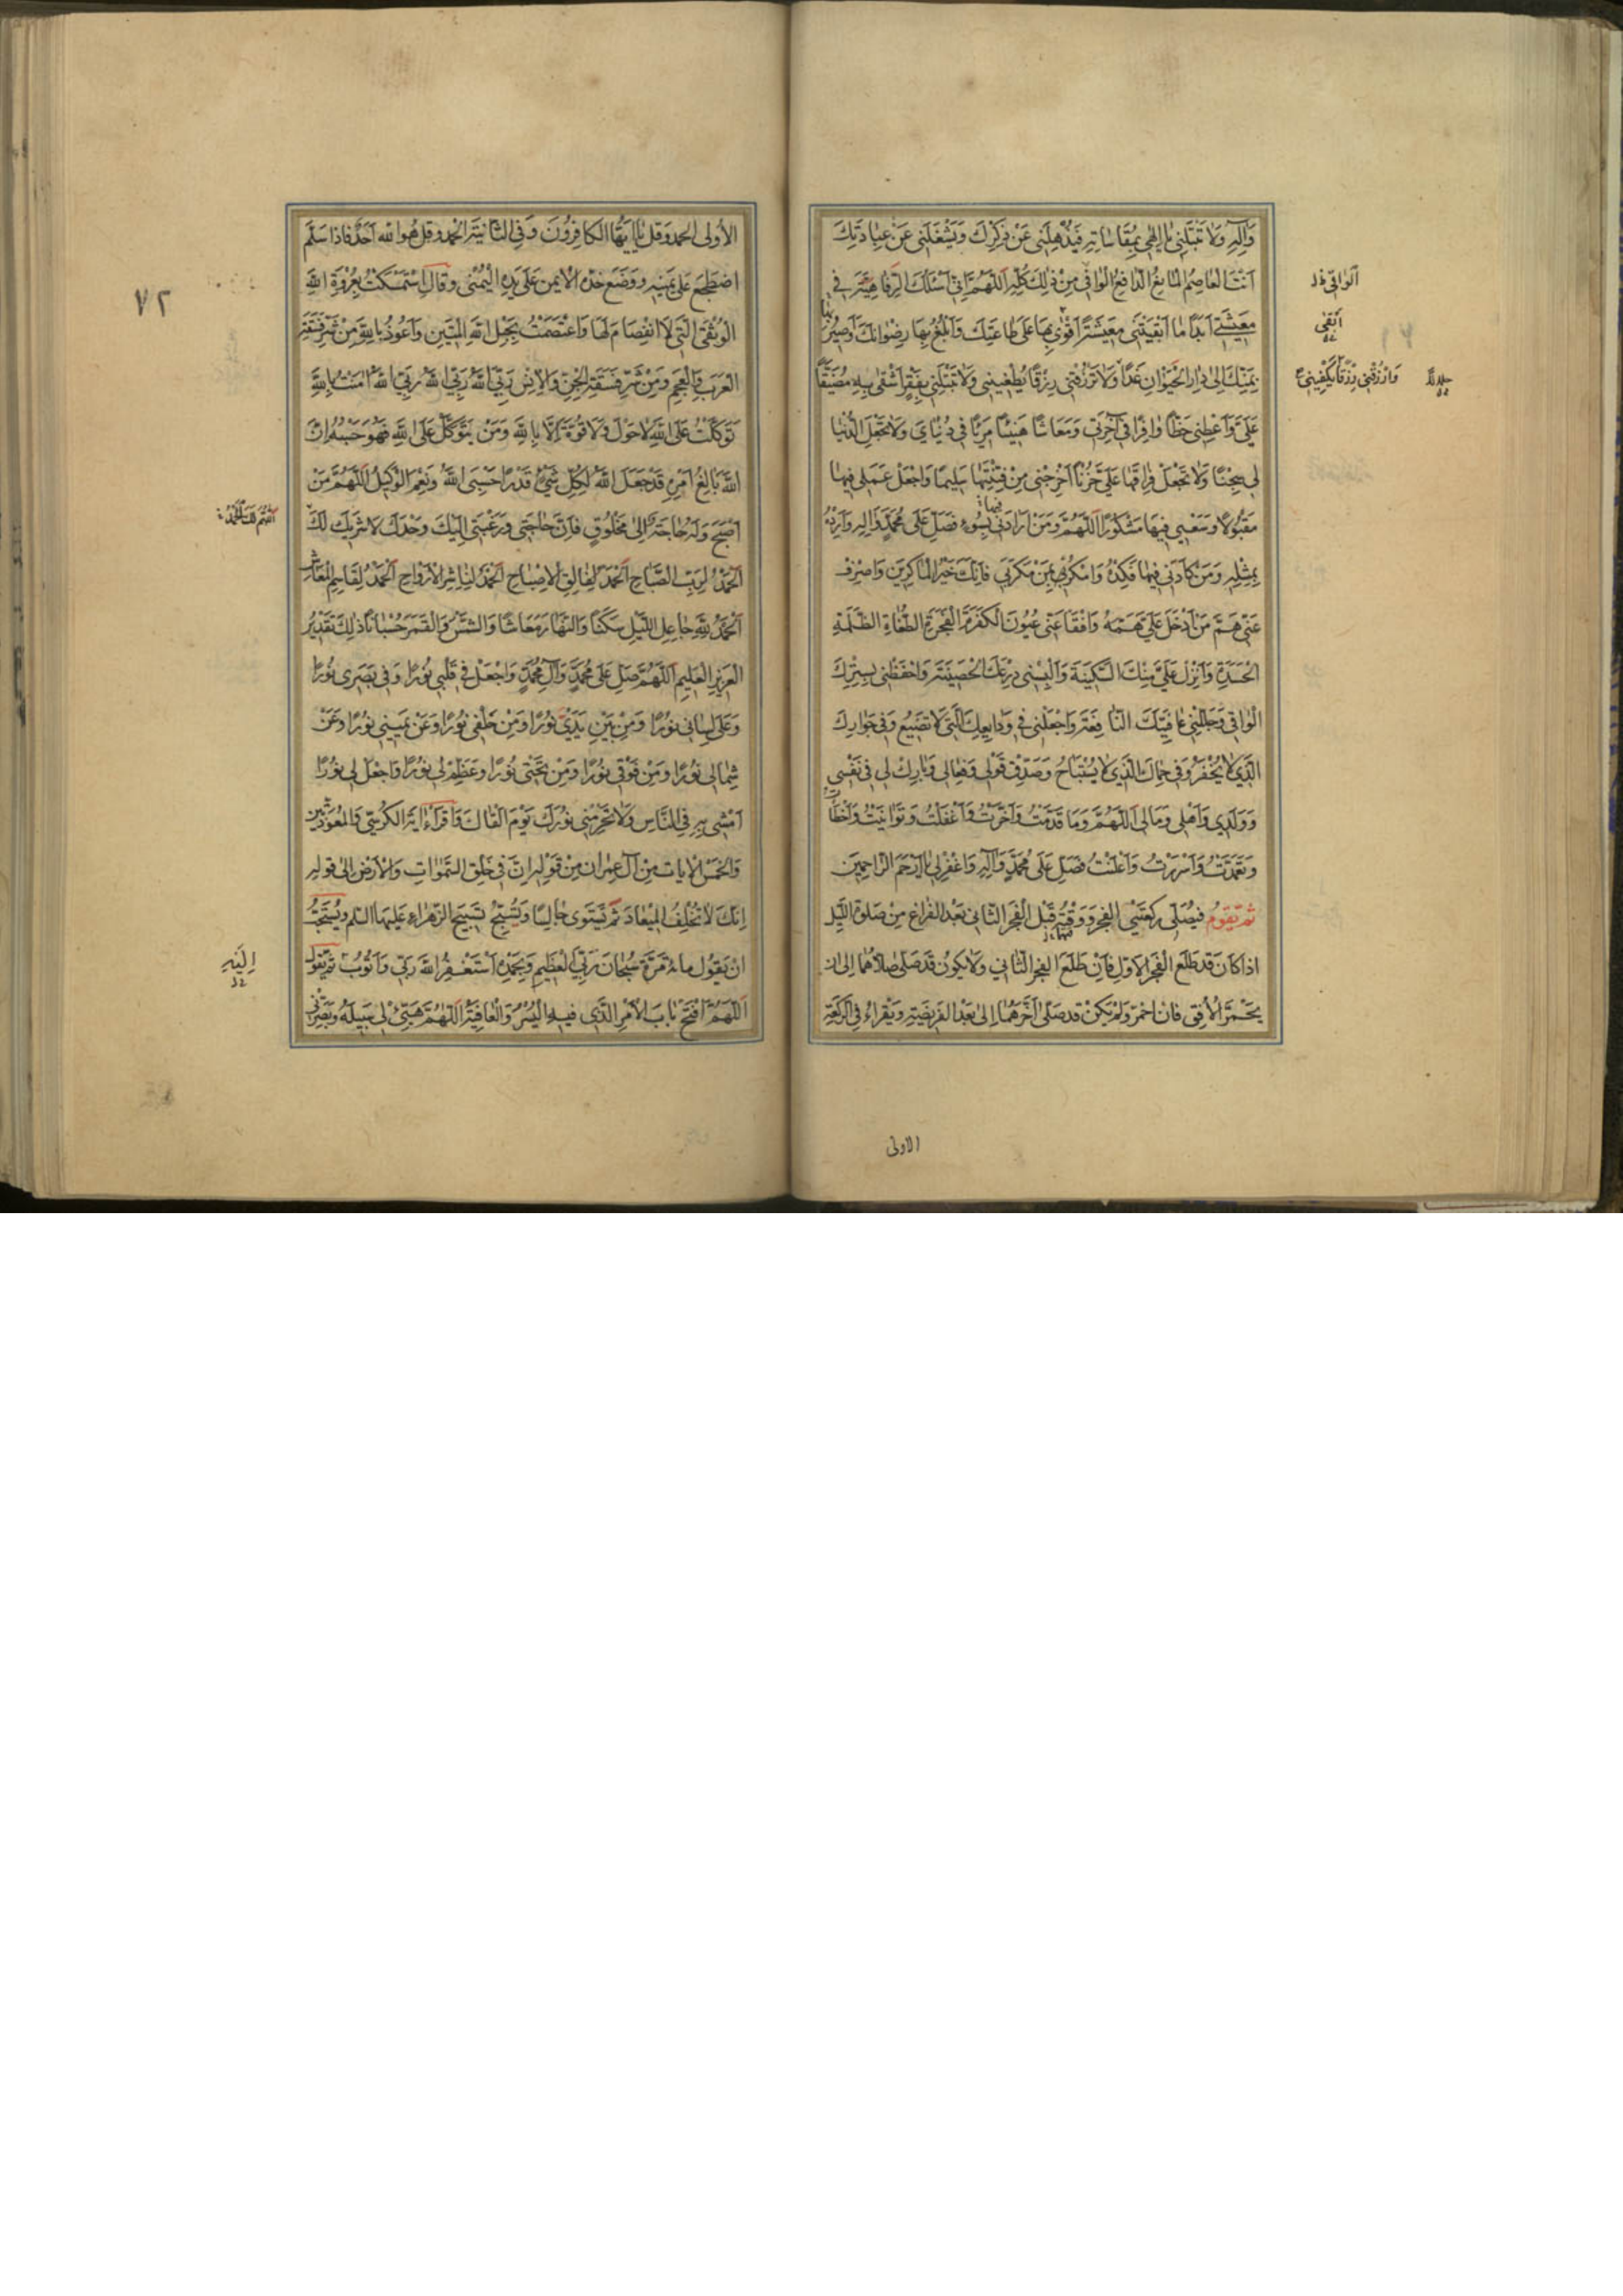 وَآلِهِ وَلَا تَبْتَلِيَنِّي يَا إِلٰهِي بِمُقَاسَاتِهِ فَيُذْهِلَنِي عَنْ ذِكْرِكَ وَيَشْغَلَنِي عَنْ عِبَادَتِكَ
اَنْتَ الْعَاصِمُ الْمَانِعُ الدَّافِعُ الْوَاقِي مِنْ ذٰلِكَ كُلِّهِ اَللّٰهُمَّ اِنِّي اَسْئَلُكَ الرِّفَاهِيَةَ فِي
مَعِيشَتِي اَبَدًا مَا اَبْقَيْتَنِي مَعِيشَةً اَقْوٰى بِهَا عَلٰى طَاعَتِكَ وَاَبْلُغُ بِهَا رِضْوَانَكَ وَاَصِيرُ بِهَا
بِمَنِّكَ اِلٰى دَارِ الْحَيَوَانِ غَدًا وَلَا تَرْزُقْنِي رِزْقًا يُطْغِينِي وَلَا تَبْتَلِنِي بِفَقْرٍ اَشْقٰى بِهِ مُضَيَّقًا
عَلَيَّ وَاَعْطِنِي حَظًّا وَافِرًا فِي آخِرَتِي وَمَعَاشًا هَنِيئًا مَرِيًّا فِي دُنْيَايَ وَلَا تَجْعَلِ الدُّنْيَا
لِي سِجْنًا وَلَا تَجْعَلْ فِرَاقَهَا عَلَيَّ حُزْنًا اَخْرِجْنِي مِنْ فِتْنَتِهَا سَلِيمًا وَاجْعَلْ عَمَلِي فِيهَا
مَقْبُولًا وَسَعْيِي فِيهَا مَشْكُورًا اَللّٰهُمَّ وَمَنْ اَرَادَنِي فِيهَا بِسُوءٍ فَصَلِّ عَلٰى مُحَمَّدٍ وَآلِهِ وَاَرِدْهُ
بِمِثْلِهِ وَمَنْ كَادَنِي فِيهَا فَكِدْهُ وَامْكُرْ بِمَنْ مَكَرَ بِي فَاِنَّكَ خَيْرُ الْمَاكِرِينَ وَاصْرِفْ
عَنِّي هَمَّ مَنْ اَدْخَلَ عَلَيَّ هَمَّهُ وَافْقَأْ عَنِّي عُيُونَ الْكَفَرَةِ الْفَجَرَةِ الطُّغَاةِ الظَّلَمَةِ
الْحَسَدَةِ وَاَنْزِلْ عَلَيَّ مِنْكَ السَّكِينَةَ وَاَلْبِسْنِي دِرْعَكَ الْحَصِينَةَ وَاحْفَظْنِي بِسِتْرِكَ
الْوَاقِي وَجَلِّلْنِي عَافِيَتَكَ النَّافِعَةَ وَاجْعَلْنِي فِي وَدَايِعِكَ الَّتِي لَا تَضِيعُ وَفِي جِوَارِكَ
الَّذِي لَا يُخْفَرُ وَفِي حِمَاكَ الَّذِي لَا يُسْتَبَاحُ وَصَدِّقْ قَوْلِي وَفِعَالِي وَبَارِكْ لِي فِي نَفْسِي
وَوَلَدِي وَاَهْلِي وَمَالِي اَللّٰهُمَّ وَمَا قَدَّمْتُ وَاَخَّرْتُ وَاَغْفَلْتُ وَتَوَانَيْتُ وَاَخْطَأْتُ
وَتَعَمَّدْتُ وَاَسْرَرْتُ وَاَعْلَنْتُ فَصَلِّ عَلٰى مُحَمَّدٍ وَآلِهِ وَاغْفِرْ لِي يَا اَرْحَمَ الرَّاحِمِينَ
ثُمَّ تَقُومُ فَيُصَلِّي رَكْعَتَيِ الْفَجْرِ وَوَقْتُهُمَا قَبْلَ الْفَجْرِ الثَّانِي بَعْدَ الْفَرَاغِ مِنْ صَلٰوةِ اللَّيْلِ
اِذَا كَانَ قَدْ طَلَعَ الْفَجْرُ الْاَوَّلُ فَاِنْ طَلَعَ الْفَجْرُ الثَّانِي وَلَا يَكُونُ قَدْ صَلّٰى صَلَّاهُمَا اِلٰى اَنْ
يَحْمَرَّ الْاُفُقُ فَاِنِ احْمَرَّ وَلَمْ يَكُنْ قَدْ صَلّٰى اَخَّرَهُمَا اِلٰى بَعْدِ الْفَرِيضَةِ وَيَقْرَاُ فِي الرَّكْعَةِ
اَلْوَاقِي
اَبْقٰى
وَارْزُقْنِي رِزْقًا يَكْفِينِي
الاولى
الْاُولٰى الْحَمْدَ وَقُلْ يَا اَيُّهَا الْكَافِرُونَ وَفِي الثَّانِيَةِ الْحَمْدَ وَقُلْ هُوَ اللّٰهُ اَحَدٌ فَاِذَا سَلَّمَ
اضْطَجَعَ عَلٰى يَمِينِهِ وَوَضَعَ خَدَّهُ الْاَيْمَنَ عَلٰى يَدِهِ الْيُمْنٰى وَقَالَ اِسْتَمْسَكْتُ بِعُرْوَةِ اللّٰهِ
الْوُثْقٰى الَّتِي لَا انْفِصَامَ لَهَا وَاعْتَصَمْتُ بِحَبْلِ اللّٰهِ الْمَتِينِ وَاَعُوذُ بِاللّٰهِ مِنْ شَرِّ فَسَقَةِ
الْعَرَبِ وَالْعَجَمِ وَمِنْ شَرِّ فَسَقَةِ الْجِنِّ وَالْاِنْسِ رَبِّيَ اللّٰهُ رَبِّيَ اللّٰهُ رَبِّيَ اللّٰهُ اٰمَنْتُ بِاللّٰهِ
تَوَكَّلْتُ عَلَى اللّٰهِ لَا حَوْلَ وَلَا قُوَّةَ اِلَّا بِاللّٰهِ وَمَنْ يَتَوَكَّلْ عَلَى اللّٰهِ فَهُوَ حَسْبُهُ اِنَّ
اللّٰهَ بَالِغُ اَمْرِهِ قَدْ جَعَلَ اللّٰهُ لِكُلِّ شَيْءٍ قَدْرًا حَسْبِيَ اللّٰهُ وَنِعْمَ الْوَكِيلُ اَللّٰهُمَّ مَنْ
اَصْبَحَ وَلَهُ حَاجَةٌ اِلٰى مَخْلُوقٍ فَاِنَّ حَاجَتِي وَرَغْبَتِي اِلَيْكَ وَحْدَكَ لَا شَرِيكَ لَكَ
اَلْحَمْدُ لِرَبِّ الصَّبَاحِ اَلْحَمْدُ لِفَالِقِ الْاِصْبَاحِ اَلْحَمْدُ لِنَاشِرِ الْاَرْوَاحِ اَلْحَمْدُ لِقَاسِمِ الْمَعَاشِ
اَلْحَمْدُ لِلّٰهِ جَاعِلِ اللَّيْلِ سَكَنًا وَالنَّهَارِ مَعَاشًا وَالشَّمْسَ وَالْقَمَرَ حُسْبَانًا ذٰلِكَ تَقْدِيرُ
الْعَزِيزِ الْعَلِيمِ اَللّٰهُمَّ صَلِّ عَلٰى مُحَمَّدٍ وَآلِ مُحَمَّدٍ وَاجْعَلْ فِي قَلْبِي نُورًا وَفِي بَصَرِي نُورًا
وَعَلٰى لِسَانِي نُورًا وَمِنْ بَيْنِ يَدَيَّ نُورًا وَمِنْ خَلْفِي نُورًا وَعَنْ يَمِينِي نُورًا وَعَنْ
شِمَالِي نُورًا وَمِنْ فَوْقِي نُورًا وَمِنْ تَحْتِي نُورًا وَعَظِّمْ لِي نُورًا وَاجْعَلْ لِي نُورًا
اَمْشِي بِهِ فِي النَّاسِ وَلَا تَحْرِمْنِي نُورَكَ يَوْمَ اَلْقَاكَ وَاقْرَاْ آيَةَ الْكُرْسِيِّ وَالْمُعَوِّذَتَيْنِ
وَالْخَمْسَ الْآيَاتِ مِنْ آلِ عِمْرَانَ مِنْ قَوْلِهِ اِنَّ فِي خَلْقِ السَّمٰوَاتِ وَالْاَرْضِ اِلٰى قَوْلِهِ
اِنَّكَ لَا تُخْلِفُ الْمِيعَادَ ثُمَّ يَسْتَوِي جَالِسًا وَيُسَبِّحُ تَسْبِيحَ الزَّهْرَاءِ عَلَيْهَا السَّلَمُ وَيُسْتَحَبُّ
اَنْ يَقُولَ مِائَةَ مَرَّةٍ سُبْحَانَ رَبِّيَ الْعَظِيمِ وَبِحَمْدِهِ اَسْتَغْفِرُ اللّٰهَ رَبِّي وَاَتُوبُ ثُمَّ يَقُولُ
اَللّٰهُمَّ افْتَحْ بَابَ الْاَمْرِ الَّذِي فِيهِ الْيُسْرُ وَالْعَافِيَةُ اَللّٰهُمَّ هَيِّئْ لِي سَبِيلَهُ وَبَصِّرْنِي
٧٢
اَللّٰهُمَّ لَكَ الْحَمْدُ
اِلَيْهِ